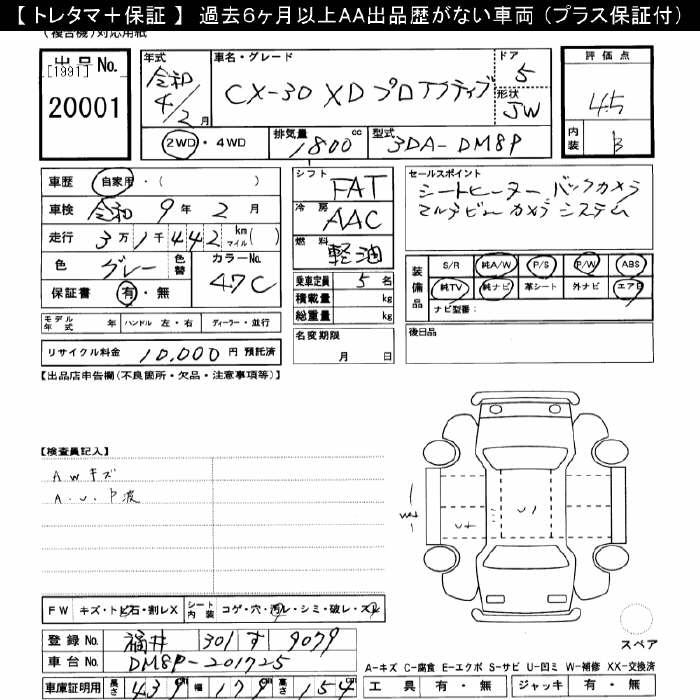 【 トレタマ＋保証 】 過去6ヶ月以上AA出品歴がない車両 (プラス保証付)
(複合機)対応用紙
出品 No. [1991]
20001
年式 令和 4/2月
車名・グレード CX-30 XD プロアクティブ
ドア 5
形状 5W
2WD・4WD
排気量 1800 cc
型式 3DA-DM8P
評価点 4.5
内装 B
車歴 自家用・( )
車検 令和 9年 2月
走行 3万1千442 km マイル( )
色 グレー 色替 カラーNo. 47C
保証書 有・無
シフト FAT
冷房 AAC
燃料 軽油
乗車定員 5名
積載量 kg
総重量 kg
名変期限 月 日
セールスポイント
シートヒーター バックカメラ
マルチビューカメラシステム
装備品 S/R 純A/W P/S P/W ABS
純TV 純ナビ 革シート 外ナビ エアB
ナビ型番:
後日品
モデル年式 年 ハンドル 左・右 ディーラー・並行
リサイクル料金 10,000 円 預託済
【出品店申告欄(不良箇所・欠品・注意事項等)】
【検査員記入】
AWキズ
A.U.P波
FW キズ・トビ石・割レX シート内装 コゲ・穴・汚レ・シミ・破レ・スレ
登録No. 福井 301 す 9079
車台No. DM8P-201725
車庫証明用 長さ 439 cm 幅 179 cm 高さ 154 cm
スペア
A-キズ C-腐食 E-エクボ S-サビ U-凹ミ W-補修 XX-交換済
工具 有・無 ジャッキ 有・無